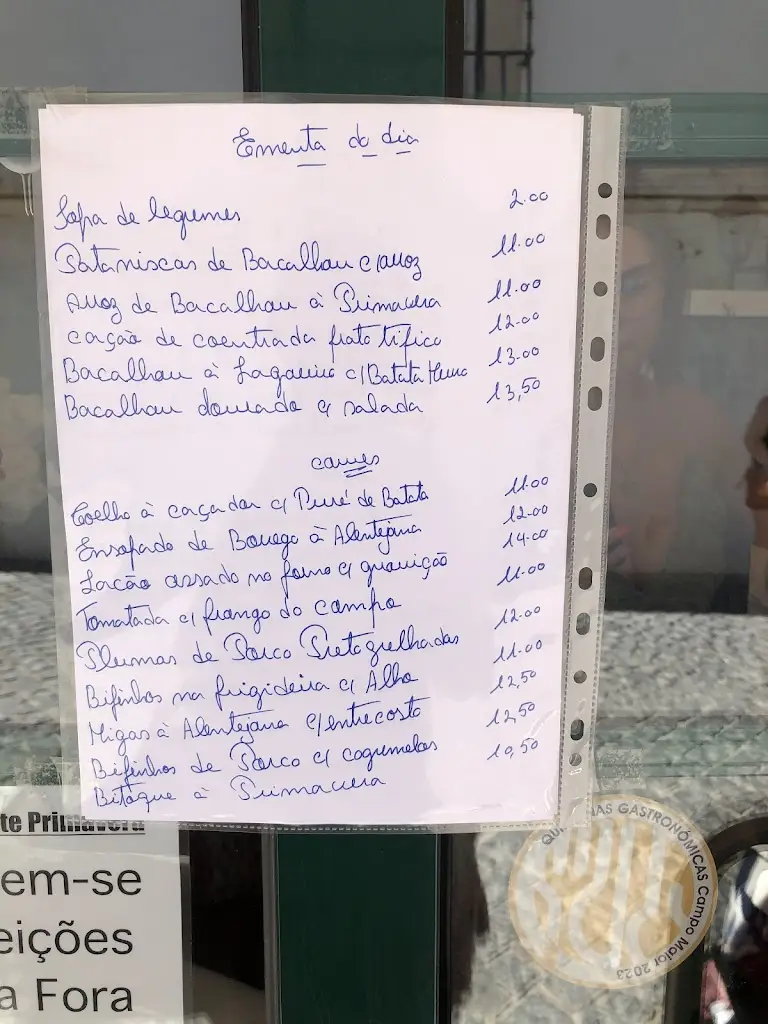 Ementa do dia
Sopa de legumes 2.00
Pataniscas de Bacalhau c/arroz 11.00
Arroz de Bacalhau à Primavera 11.00
Cação de coentrada prato tífico 12.00
Bacalhau à Lagareiro c/Batata Murro 13.00
Bacalhau dourado c/ salada 13,50
carnes
Coelho à caçador c/ Puré de Batata 11.00
Ensopado de Borrego à Alentejana 12.00
Lacão assado no forno c/ guarnição 14.00
Tomatada c/ frango do campo 11.00
Plumas de Porco Preto grelhadas 12.00
Bifinhos na frigideira c/ Alho 11.00
Migas à Alentejana c/entrecosto 12,50
Bifinhos de Porco c/ cogumelos 12,50
Bitoque à Primavera 10,50
te Primavera
em-se
eições
a Fora
GASTRONÓMICAS Campo Maior 2023